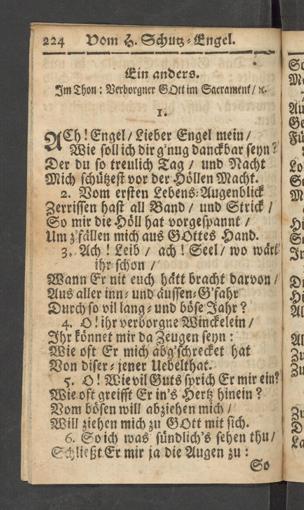 224 Vom H. Schutz-Engel.
Ein anders.
Im Thon: Verborgner GOtt im Sacrament / ꝛc.
1.
ACh! Engel / Lieber Engel mein /
Wie soll ich dir g'nug danckbar seyn?
Der du so treulich Tag / und Nacht
Mich schützest vor der Höllen Macht.
2. Vom ersten Lebens-Augenblick
Zerrissen hast all Band / und Strick /
So mir die Höll hat vorgespannt /
Um z'fällen mich aus GOttes Hand.
3. Ach! Leib / ach! Seel / wo wärt
ihr schon /
Wann Er nit euch hätt bracht darvon /
Aus aller inn- und äussen-G'fahr
Durch so vil lang- und böse Jahr?
4. O! ihr verborgne Winckelein /
Ihr könnet mir da Zeugen seyn:
Wie oft Er mich abg'schrecket hat
Von diser- jener Uebelthat.
5. O! Wie vil Guts sprich Er mir ein?
Wie oft greifft Er in's Hertz hinein?
Vom bösen will abziehen mich /
Will ziehen mich zu GOtt mit sich.
6. So ich was sündlich's sehen thu /
Schließt Er mir ja die Augen zu:
So